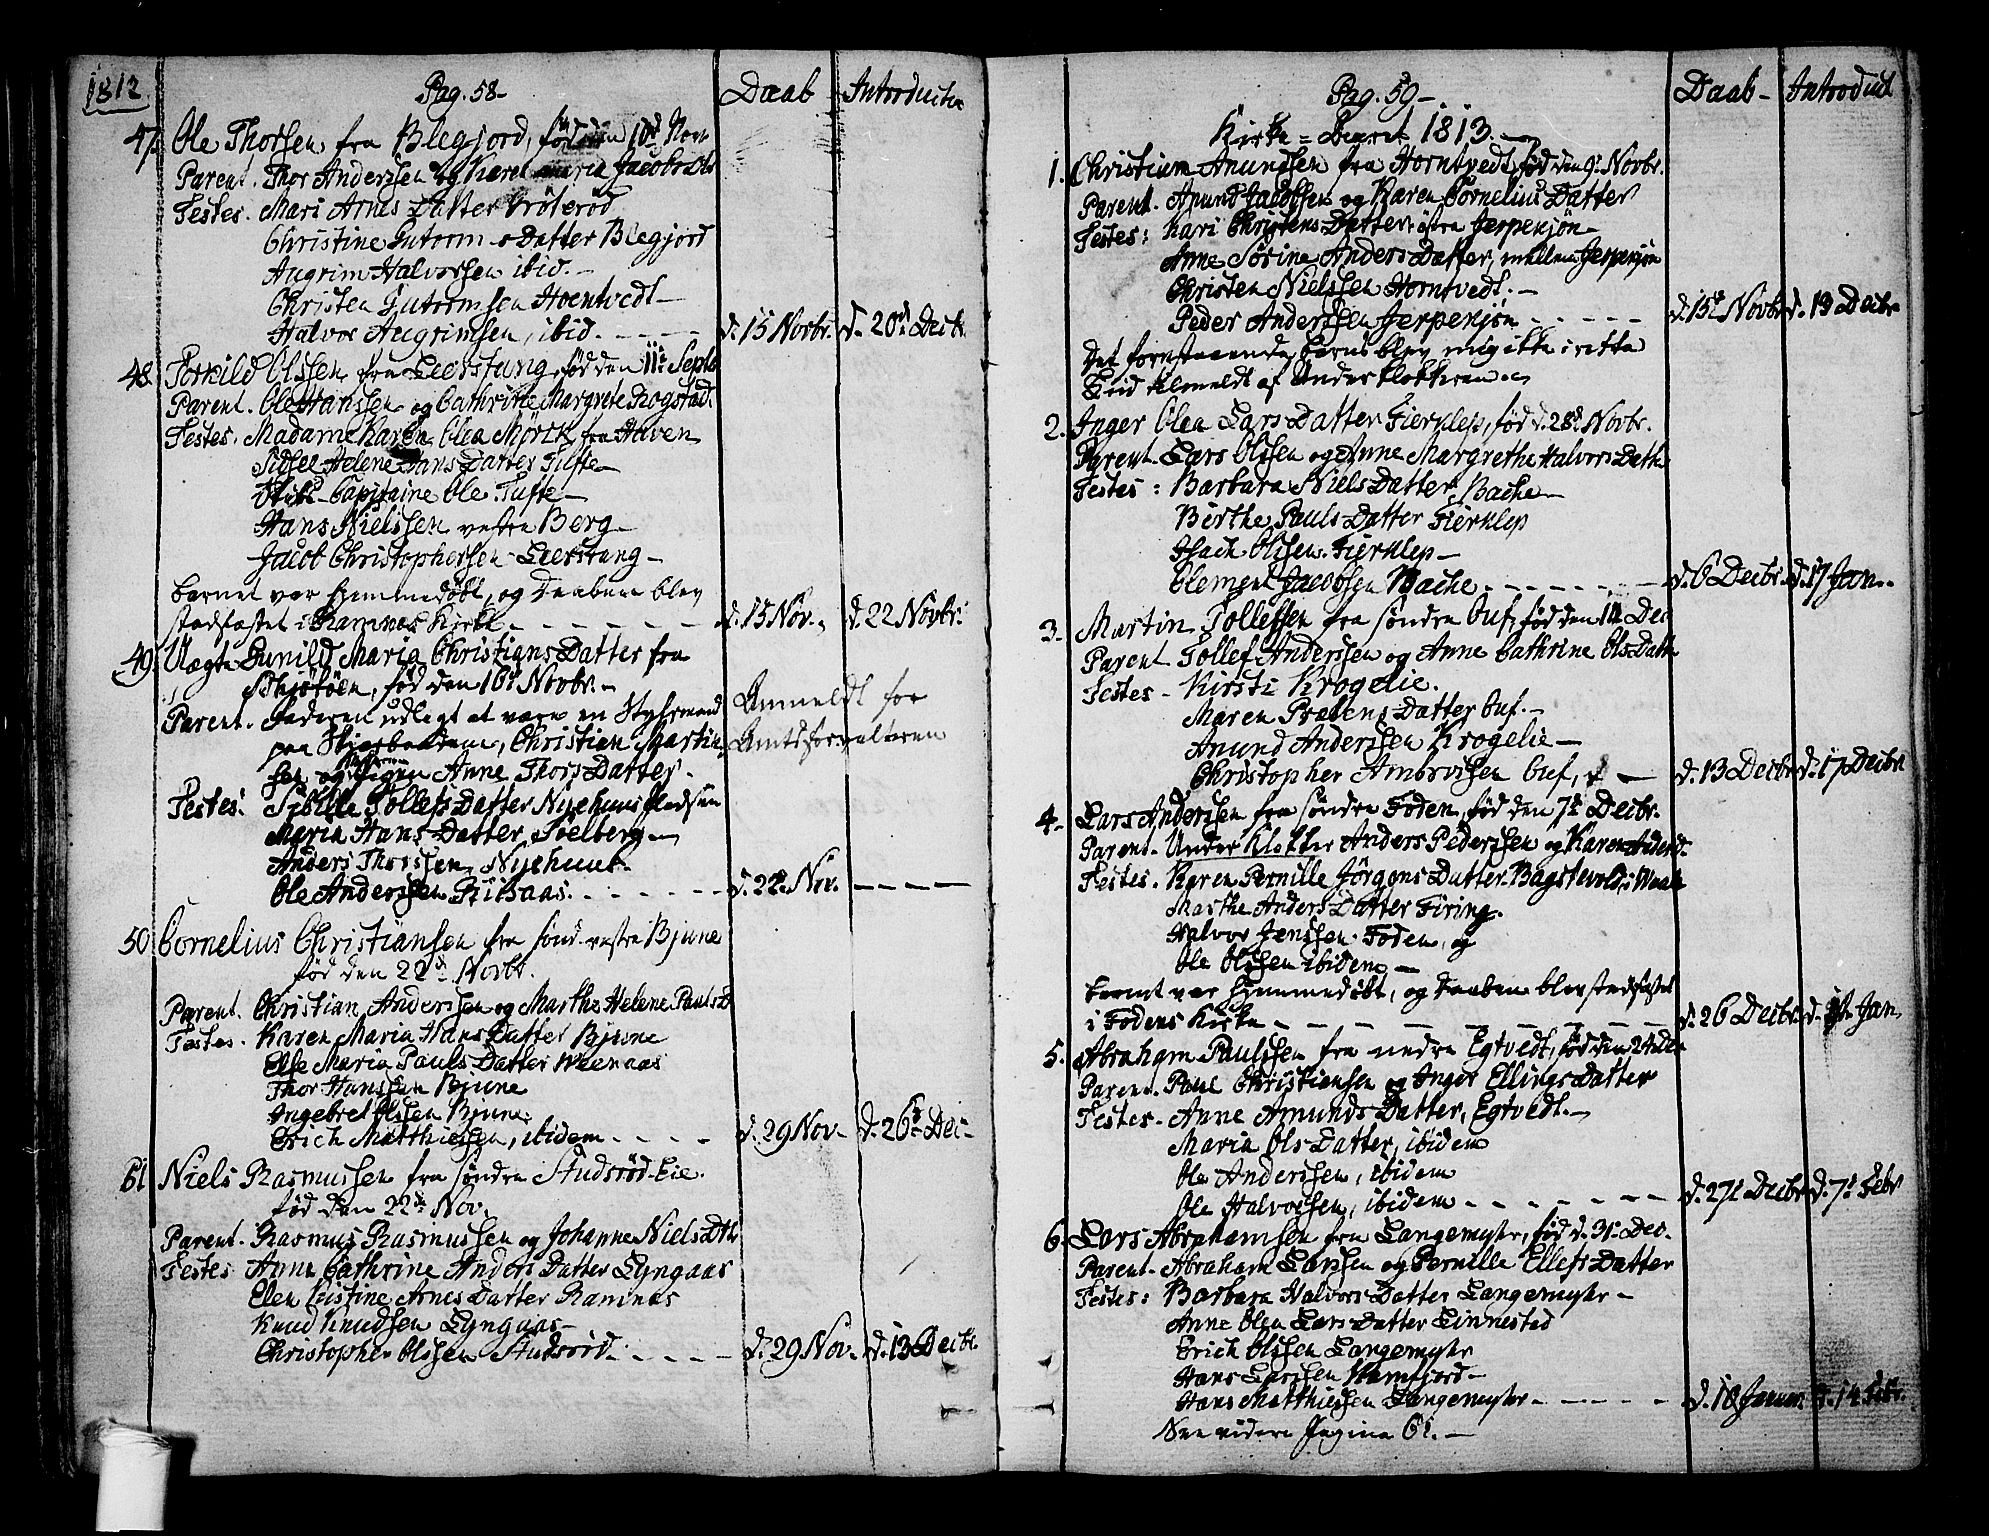 1812.
Pag. 58-
Daab
Introductie
47. Ole Thorsen fra Blegjord, fød den 10d Novr
Parent. Thor Anderssen og Karen Maria Jacobs Dtr
Testes. Mari Arnes Datter Trøterød
Christine Gutorms Datter Blegjord
Augrim Halvorssen ibid. -
Christen Gutormsen Hoentvedt -
Halvor Augrimsen, ibid. - - - - d. 15 Novbr. d. 20d Decbr.
48. Torkild Olssen, fra Leerstang, fød den 11te Septb
Parent. Ole Hanssen og Cathrine Margrete Rogstad.
Testes. Madame Karen Olea Mørck fra Haven
Sidsel Helene Hans Datter Tufte -
Skibs-Capitaine Ole Tufte -
Hans Nielssen vestre Berg -
Jacob Christophersen Leerstang -
barnet var hjemmedøbt, og Daaben blev
stadfæstet i Ramnes Kirke - - - - - d. 15 Nov. d. 22 Novbr.
49. Uægte Gunild Maria Christians Datter fra
fød den 16d Novbr. -
Parent. Faderen udlagt at være en Styhrmand
paa Christian Martin
sen og Pigen Anne Thors Datter.
Anmeldt for
Amtsforvalteren
Testes: Sibille Tollefs Datter Nyehuus
Maria Hans Datter Soelberg -
Anders Thorssen, Nyehuus.
Ole Anderssen Griisaas. - - - - - d. 22d Nov. - - - -
50 Cornelius Christiansen fra sønd. vestre Bjune
fød den 22d Novbr.
Parent. Christian Anderssen og Marthe Helene Pauls D
Testes. Karen Maria Hans Datter Bjune
Else Maria Pauls Datter Weenaas
Thor Hanssen Bjune
Ingebret Olssen Bjune
Erich Matthiessen, ibidem - - - - d. 29 Nov - d. 26d Dec -
51 Niels Rasmussen fra søndre Studsrød-Eie.
fød den 22d Nov.
Parent. Rasmus Rasmussen og Johanne Niels Dtr
Testes Anne Cathrine Anders Datter Lyngaas
Elen Cistine Arnes Datter Ramnæs
Knud Knudsen Lyngaas -
Christopher Olssen Studsrød. - - - - d. 29 Nov. d. 13 Decbr.
Pag. 59 -
Daab - Introduct
Kirke = Aaret 1813. -
1. Christian Anundsen fra Horntvedt, fød den 9d Novbr.
Parent. Anund Jacobsen og Karen Cornelius Datter
Testes: Kari Christens Datter østre Jerpenjøn -
Anne Sørine Anders Datter, mellem Jerpenjøn
Christen Nielssen Horntvedt. -
Peder Anderssen Jerpenjøn - - - - - d. 15d Novbr d. 13 Decbr
Det foranstaaende barns blev mig ikke i rette
Tiid tilmeldt af Underklokkeren.
2. Inger Olea Lars Datter Fierklep, fød d. 28d Novbr.
Parent. Lars Olssen og Anne Margrethe Halvors Datt.
Testes: Barbara Niels Datter Bache -
Birthe Pauls Datter Fierklep
Isach Olssen Fierklep -
Clement Jacobsen Bache - - - - - d. 6 Decbr. d. 17 Jan. -
3. Martin Tollefsen fra søndre Buf, fød den 11 Dec
Parent Tollef Anderssen og Anne Cathrine Ols Datt.
Testes - Kirsti Krogelie.
Maren Prebens Datter Buf. -
Anund Anderssen Krogelie -
Christopher Ambrosen Buf, - d. 13 Decbr d. 17 Decbr
4. Lars Anderssen fra søndre Foden, fød den 7d Decbr.
Parent. Under Klokker Anders Pederssen og Karen Anders D.
Testes. Karen Pernille Jørgens Datter Bagstevold i
Marthe Anders Datter Firing.
Halvor Jenssen Foden, og
Ole Olssen ibidem -
barnet var hjemmedøbt, og Daaben blev stadfæstet
i Fodens Kirke - - - - - - - d. 26 Decbr. d. Jan.
5. Abraham Paulssen fra nedre Egtvedt, fød den
Parent. Paul Christiansen og Inger Ellings Datter
Testes. Anne Amunds Datter, Egtvedt. -
Maria Ols Datter, ibidem
Ole Anderssen, ibidem
Ole Halvorssen, ibidem - - - - - d. 27d Decbr d. 7d Febr
6. Lars Abrahamsen fra Langemyhr, fød d. 31. Dec.
Parent. Abraham Larssen og Pernille Ellefs Datter
Testes: Barbara Halvors Datter Langemyhr -
Anne Olea Lars Datter Linnestad
Erich Olssen Langemyhr
Hans Larssen Ramfjord -
Hans Matthiessen Langemyhr - - - - - d. 10 Januar. d. 14 Febr.
See videre Pagina 61. -